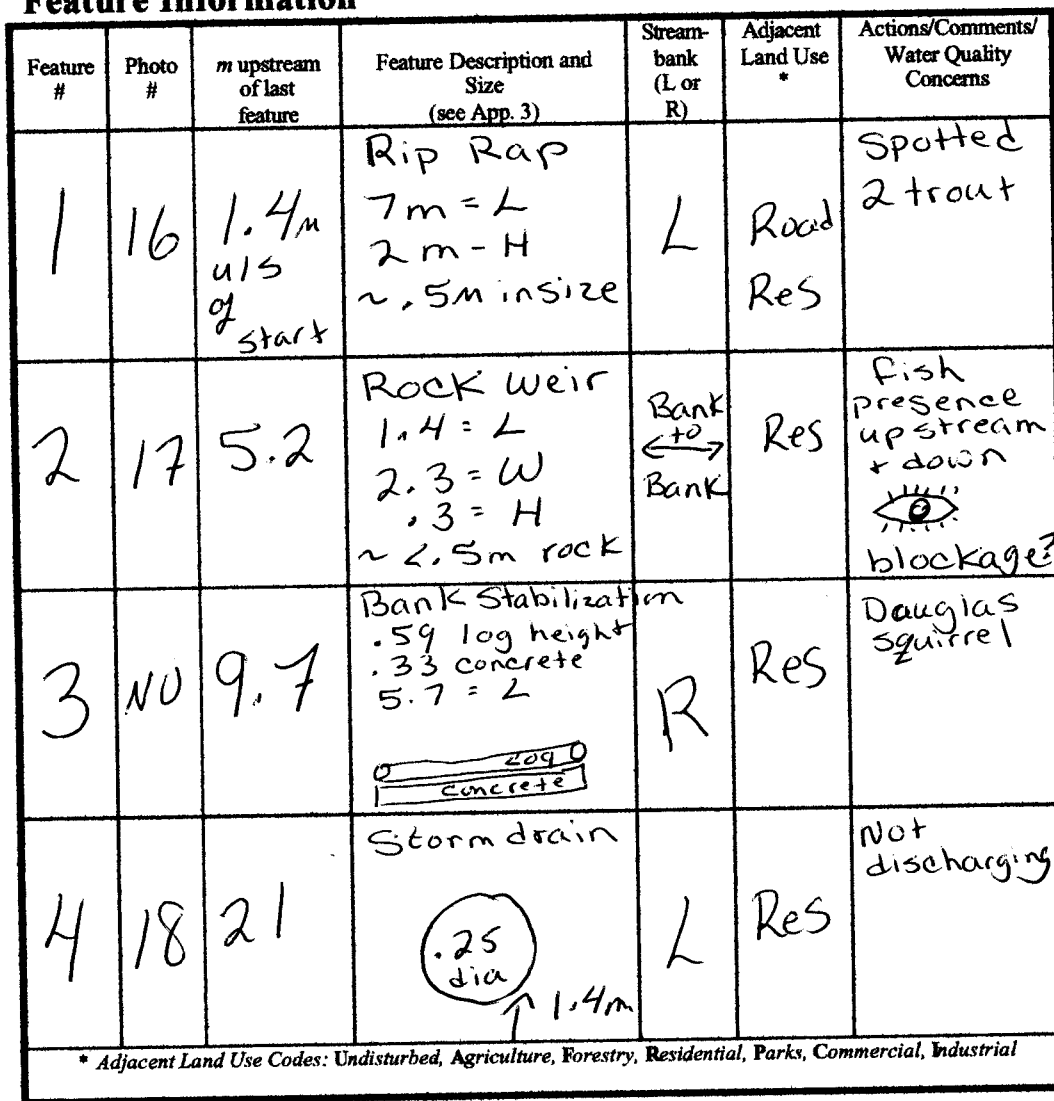 Feature Information
Feature # Photo # m upstream of last feature Feature Description and Size (see App. 3) Stream-bank (L or R) Adjacent Land Use * Actions/Comments/ Water Quality Concerns
1
16
1.4m
u/s
of
start
Rip Rap
7m = L
2m - H
~ .5m in size
L
Road
Res
Spotted
2 trout
2
17
5.2
Rock weir
1.4 = L
2.3 = W
.3 = H
~ <.5m rock
Bank
to
Bank
Res
Fish
presence
upstream
+ down
blockage?
3
NO
9.7
Bank Stabilization
.59 log height
.33 concrete
5.7 = L
Log
Concrete
R
Res
Dauglas
squirrel
4
18
21
Storm drain
.25
dia
1.4m
L
Res
Not
discharging
* Adjacent Land Use Codes: Undisturbed, Agriculture, Forestry, Residential, Parks, Commercial, Industrial